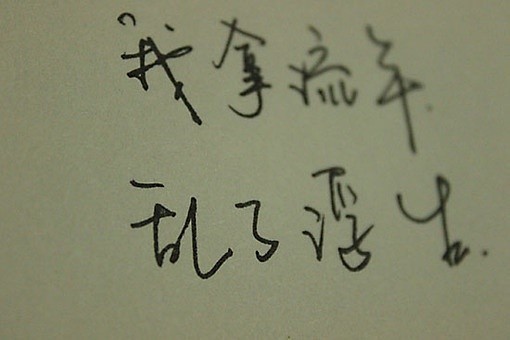 “我拿流年
乱了浮生.